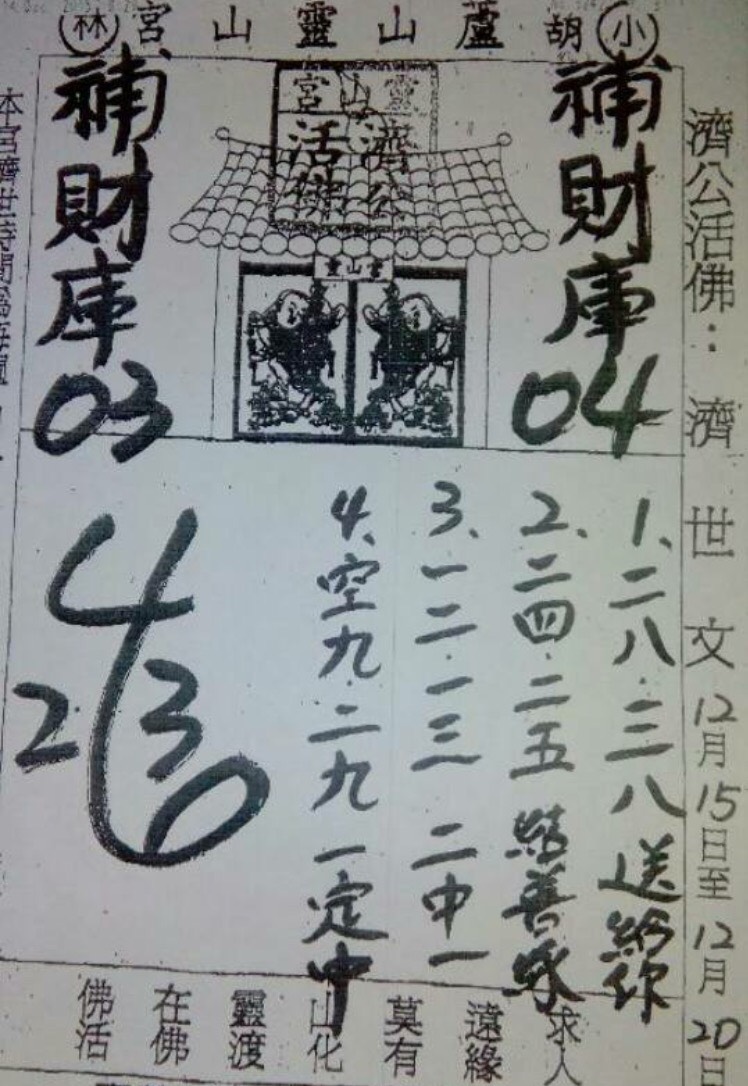 小 胡 蘆山靈山宮 林
濟公活佛：濟世文 12月15日至12月20日
補財庫 04
靈山宮
濟公活佛
補財庫 03
本宮濟世時間為每週
1、二八.三八 送給你
2、二四.二五 結善緣
3、一二.一三 二中一
4、空九.二九 一定中
4
2 3
佛在靈山莫遠求
活佛渡化有緣人